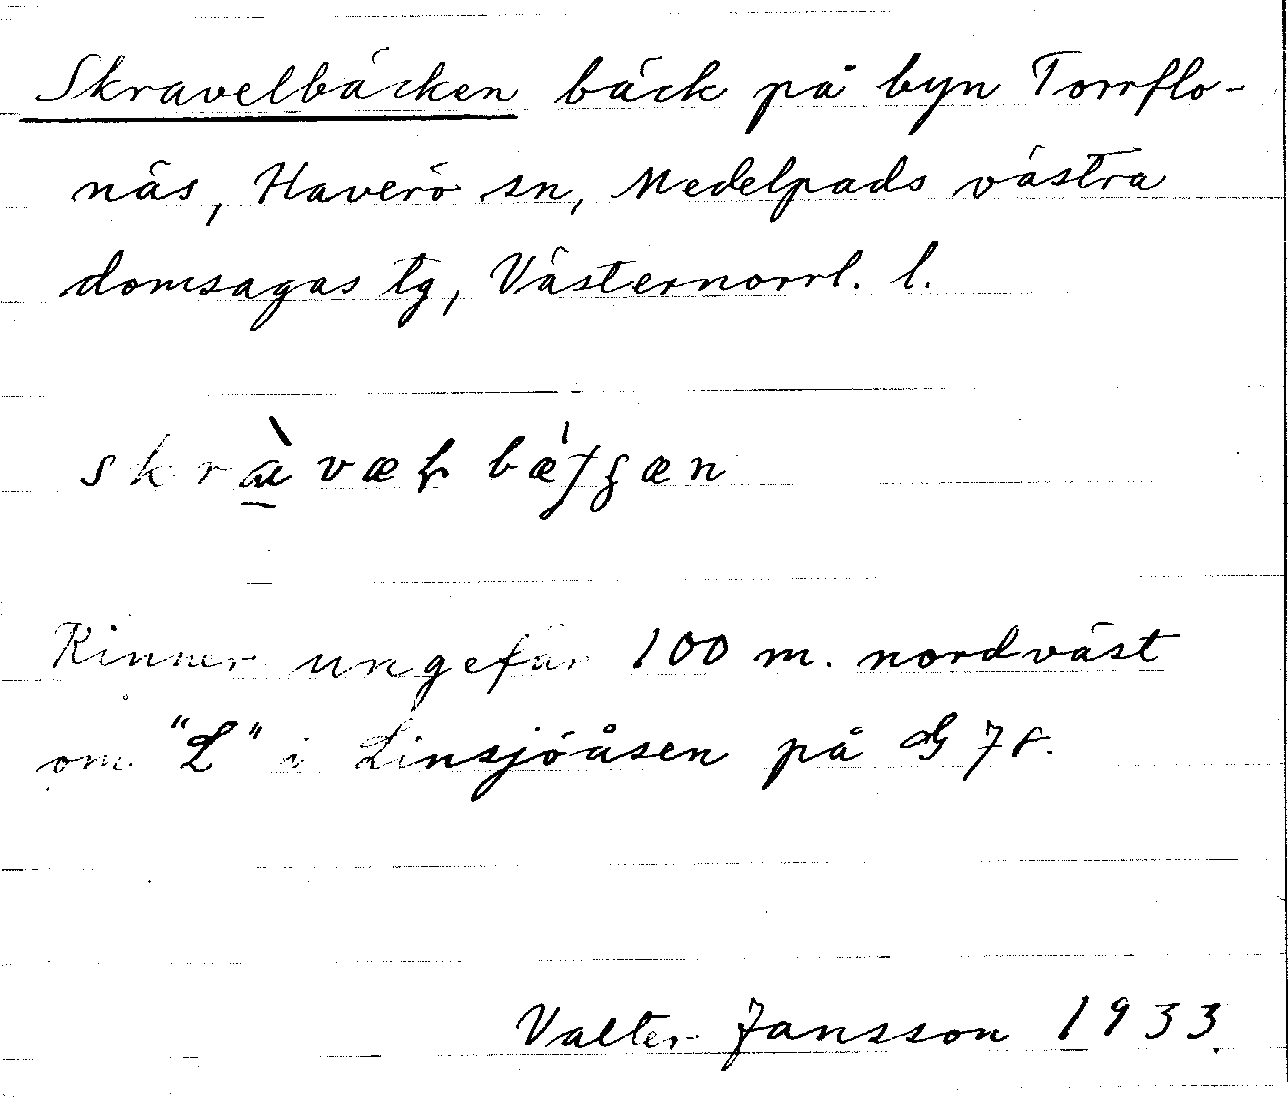 Skravelbäcken bäck på byn Torrflo-
näs, Haverö sn, Medelpads västra
domsagas tg, Västernorrl. l.
Rinner ungefär 100 m. nordväst
om "L" i Linsjöåsen på
Valter Jansson 1933.